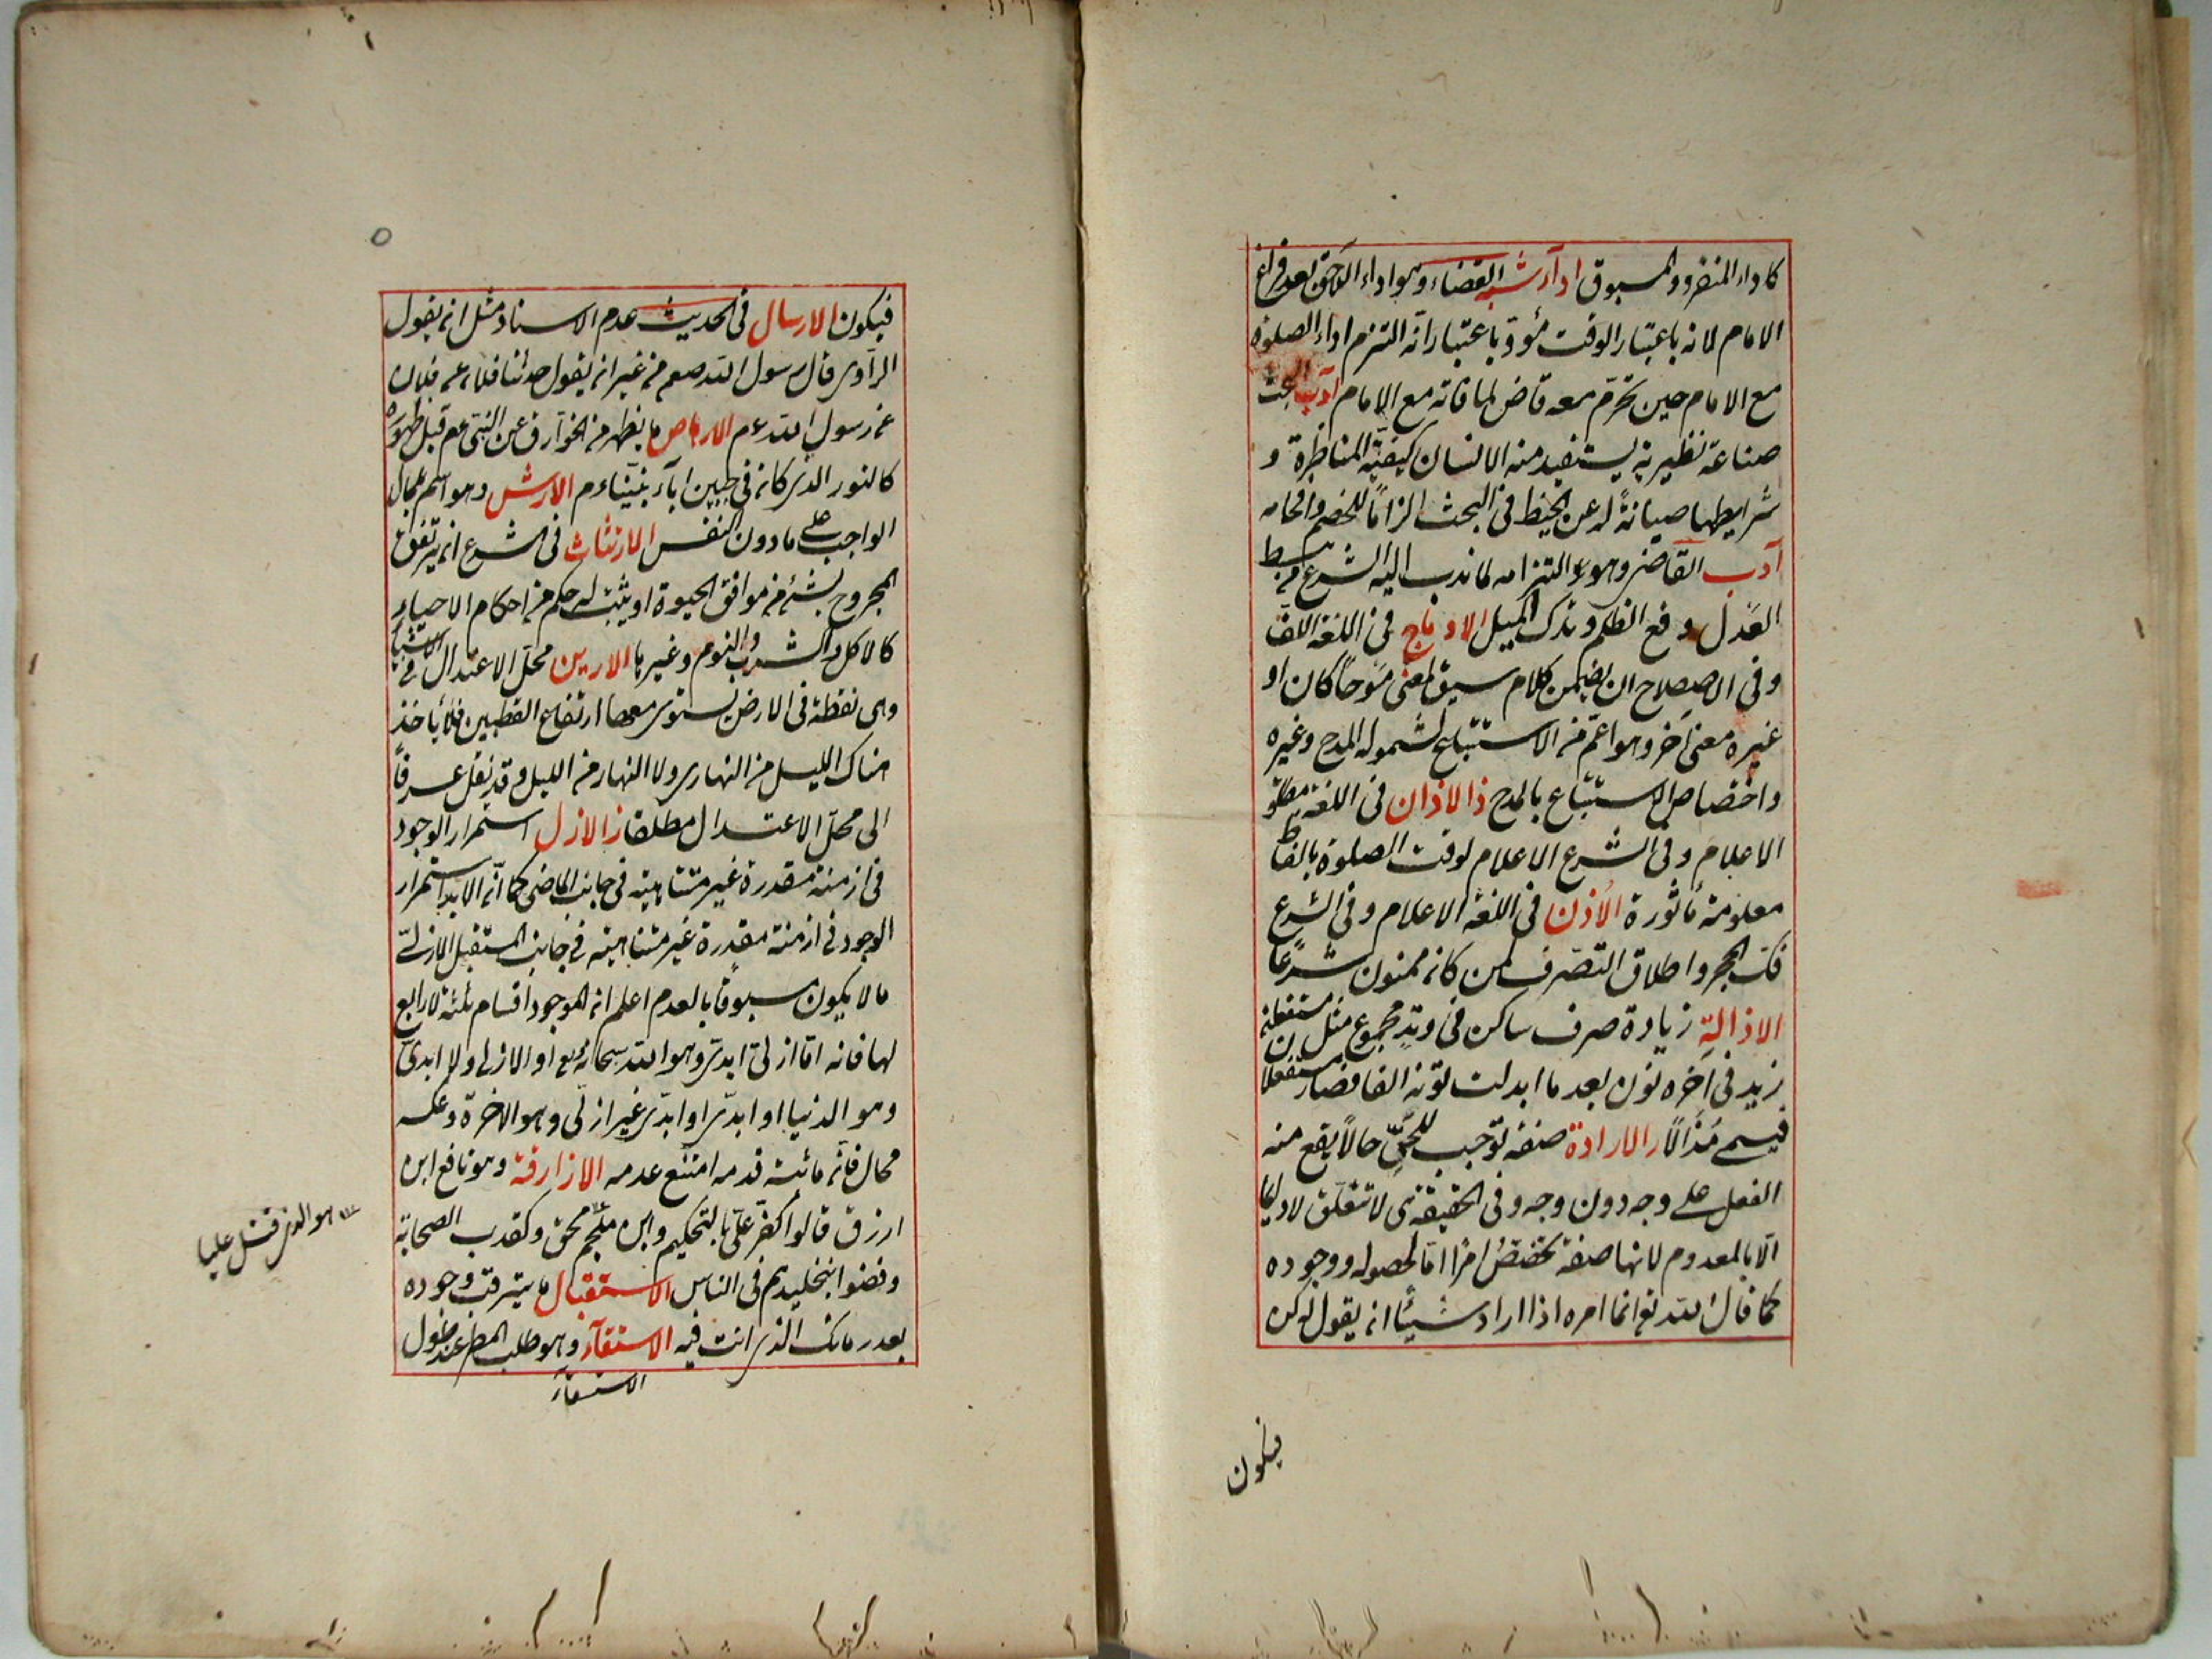 كاداء المنفرد والمسبوق اداء يشبه القضاء وهو اداء اللاحق بعد فراغ
الامام لانه باعتبار الوقت مؤد وباعتبار انه التزم اداء الصلوة
مع الامام حين تحرم معه قاض لما فاته مع الامام آداب البحث
صناعة نظرية يستفيد منه الانسان كيفية المناظرة و
شرايطها صيانة له عن الخبط في البحث الزاما للخصم وافحامه
آدب القاضي وهو التزامه لما ندب اليه الشرع من بسط
العدل و رفع الظلم و ترك الميل الادماج في اللغة اللف
وفي الاصطلاح ان يضمن كلام سيق لمعنى مدحا كان او
غيره معنى آخر وهو اعم من الاستتباع لشموله المدح وغيره
واختصاص الاستتباع بالمدح ذ الاذان في اللغة مطلق
الاعلام وفي الشرع الاعلام لوقت الصلوة بالفاظ
معلومة مأثورة الاذن في اللغة الاعلام وفي الشرع
فك الحجر واطلاق التصرف لمن كان ممنوعا شرعا
الاذالة زيادة حرف ساكن في وتد مجموع مثل مستفعلن
زيد في آخره نون بعد ما ابدلت نونه الفا فصار مستفعلان
فيسمى مذالا ر الارادة صفة توجب للحي حالا يقع منه
الفعل على وجه دون وجه وفي الحقيقة هي لا تتعلق دائما
الا بالمعدوم لانها صفة تخصص امرا اما لحصوله ووجوده
كما قال الله تع انما امره اذا اراد شيئا ان يقول له كن
فيكون
فيكون الارسال في الحديث عدم الاسناد مثل ان يقول
الراوى قال رسول الله صعم من غير ان يقول حدثنا فلان عن فلان
عن رسول الله ءم الارهاص ما يظهر من الخوارق عن النبي عم قبل ظهوره
كالنور الذي كان في جبين اباء نبينا ءم الارش وهو اسم للمال
الواجب على ما دون النفس الارتثاث في الشرع ان يرتفق
المجروح بشئ من مرافق الحيوة او يثبت له حكم من احكام الاحياء
كالاكل والشرب والنوم وغيرها الارين محل الاعتدال في الاشياء
وهي نقطة في الارض يستوى معها ارتفاع القطبين فلا يأخذ
هناك الليل من النهار ولا النهار من الليل وقد نقل عرفا
الى محل الاعتدال مطلقا ز الازل استمرار الوجود
في ازمنة مقدرة غير متناهية في جانب الماضي كما ان الابد استمرار
الوجود في ازمنة مقدرة غير متناهية في جانب المستقبل الازلي
ما لا يكون مسبوقا بالعدم اعلم ان الموجود اقسام ثلثة لا رابع
لها فانه اما ازلي ابدي وهو الله سبحانه وتع او لا ازلي ولا ابدي
وهو الدنيا او ابدى او ابدى غير ازلي وهو الاخرة وعكسه
محال فان ما ثبت قدمه امتنع عدمه الازارقة وهو نافع ابن
ازرق قالوا كفر علي بالتحكيم وابن ملجم محق وكفرت الصحابة
وقضوا بتخليدهم في النار س الاستقبال ما يترقب وجوده
بعد زمانك الذي انت فيه الاستسقاء وهو طلب المطر عند طول
الاستسقاء
هو الذي قتل عليا